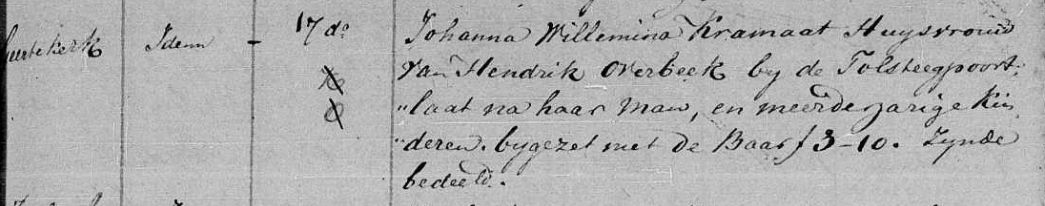 Geertekerk Idem - 17 do Johanna Willemina Kramaat Huysvrouw
van Hendrik Overbeek by de Tolsteegpoort,
" laat na haar man, en meerderjarige Kin
" deren. bygezet met de Baar f 3-10. Zynde
bedeeld.